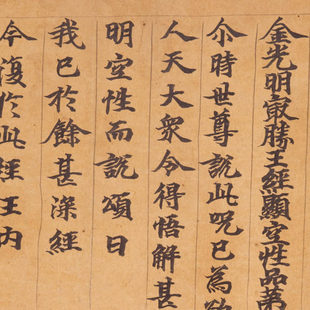 金光明㝡勝王經顯空性品第
尒時世尊說此呪已為欲
人天大衆令得悟解甚
明空性而說頌曰
我已於餘甚深經
今復於此經王內